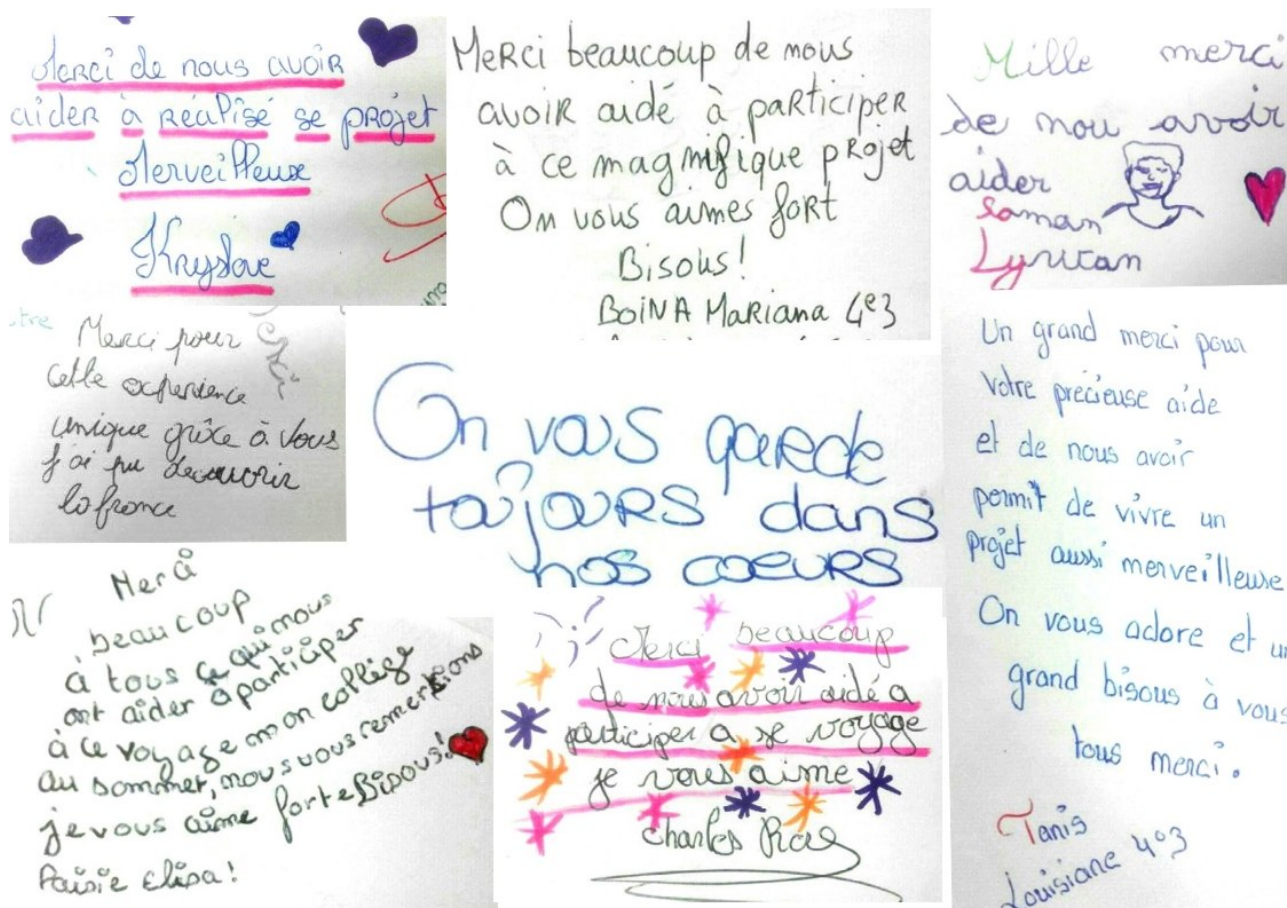 Merci de nous avoir
aider à réalisé se projet
Merveilleuse
Krystove
Merci beaucoup de nous
avoir aidé à participer
à ce magnifique projet
On vous aimes fort
Bisous!
BOINA Mariana 4e3
Mille merci
de nou avoir
aider
Soman
Merci pour
cette experience
unique grâce à vous
j'ai pu decouvrir
la france
On vous garde
toujours dans
nos coeurs
Un grand merci pour
votre précieuse aide
et de nous avoir
permit de vivre un
projet aussi merveilleuse
On vous adore et un
grand bisous à vous
tous merci.
Tanis
Louisiane 4e3
Merci
beaucoup
à tous ce qui nous
ont aider à participer
à ce voyage mon collège
au sommet, nous vous remercions
je vous aime forte Bisous!
Paisie Elisa!
Merci beaucoup
de nous avoir aidé a
participer a se voyage
je vous aime
Charles